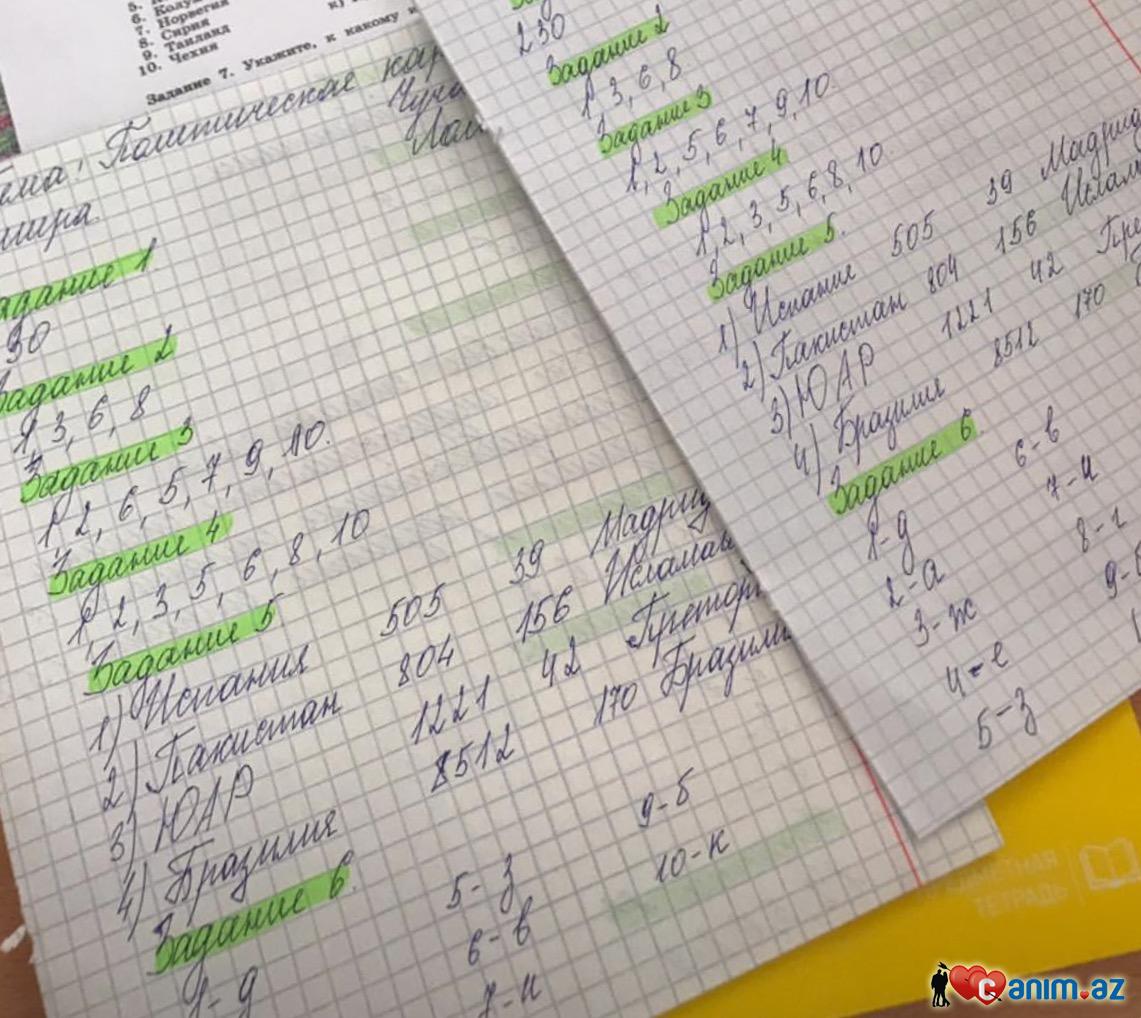 6. Колум
7. Норвегия
8. Сирия
9. Таиланд
10. Чехия
к)
Задание 7. Укажите, к какому
ема: Политическая кар
мира.
адание 1
30
Задание 2
1, 3, 6, 8
Задание 3
1, 2, 6, 5, 7, 9, 10.
Задание 4
1, 2, 3, 5, 6, 8, 10
Задание 5
1) Испания 505 39 Мадрид
2) Пакистан 804 156 Исламаб
3) ЮАР 1221 42 Претори
4) Бразилия 8512 170 Бразили
Задание 6.
1-д
5-з
6-в
7-и
9-б
10-к
230
Задание 2
1, 3, 6, 8
Задание 3
1, 2, 5, 6, 7, 9, 10
Задание 4
1, 2, 3, 5, 6, 8, 10
Задание 5.
1) Испания 505 39 Мадрид
2) Пакистан 804 156 Ислам
3) ЮАР 1221 42 Пре
4) Бразилия 8512 170
Задание 6
1-д
2-а
3-ж
4-е
5-з
6-в
7-и
8-г
9-б
ТЕТРАДЬ
canim.az